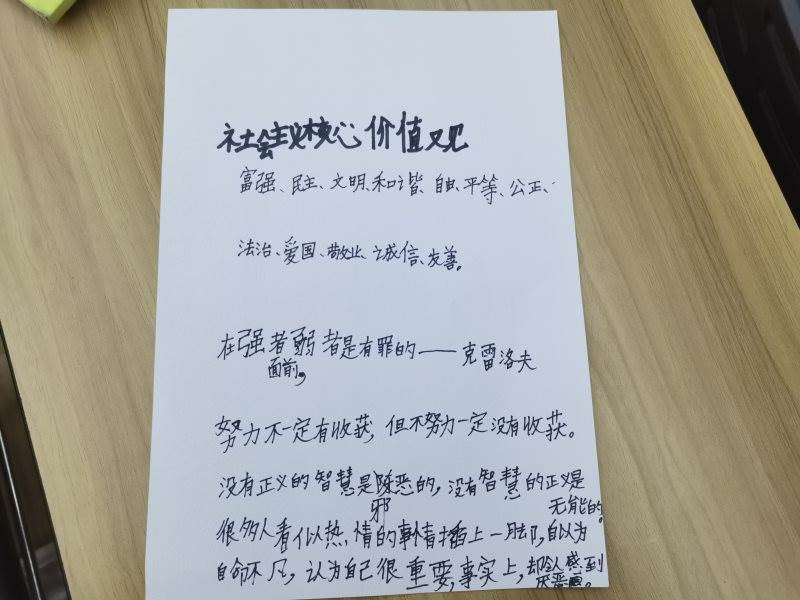 社会主义核心价值观
富强、民主、文明、和谐、自由、平等、公正、
法治、爱国、敬业、诚信、友善。
在强者面前，弱者是有罪的——克雷洛夫
努力不一定有收获，但不努力一定没有收获。
没有正义的智慧是邪恶的，没有智慧的正义是无能的。
很多人看似热情的事情插上一脚，自以为
自命不凡，认为自己很重要，事实上，却令人感到厌恶。